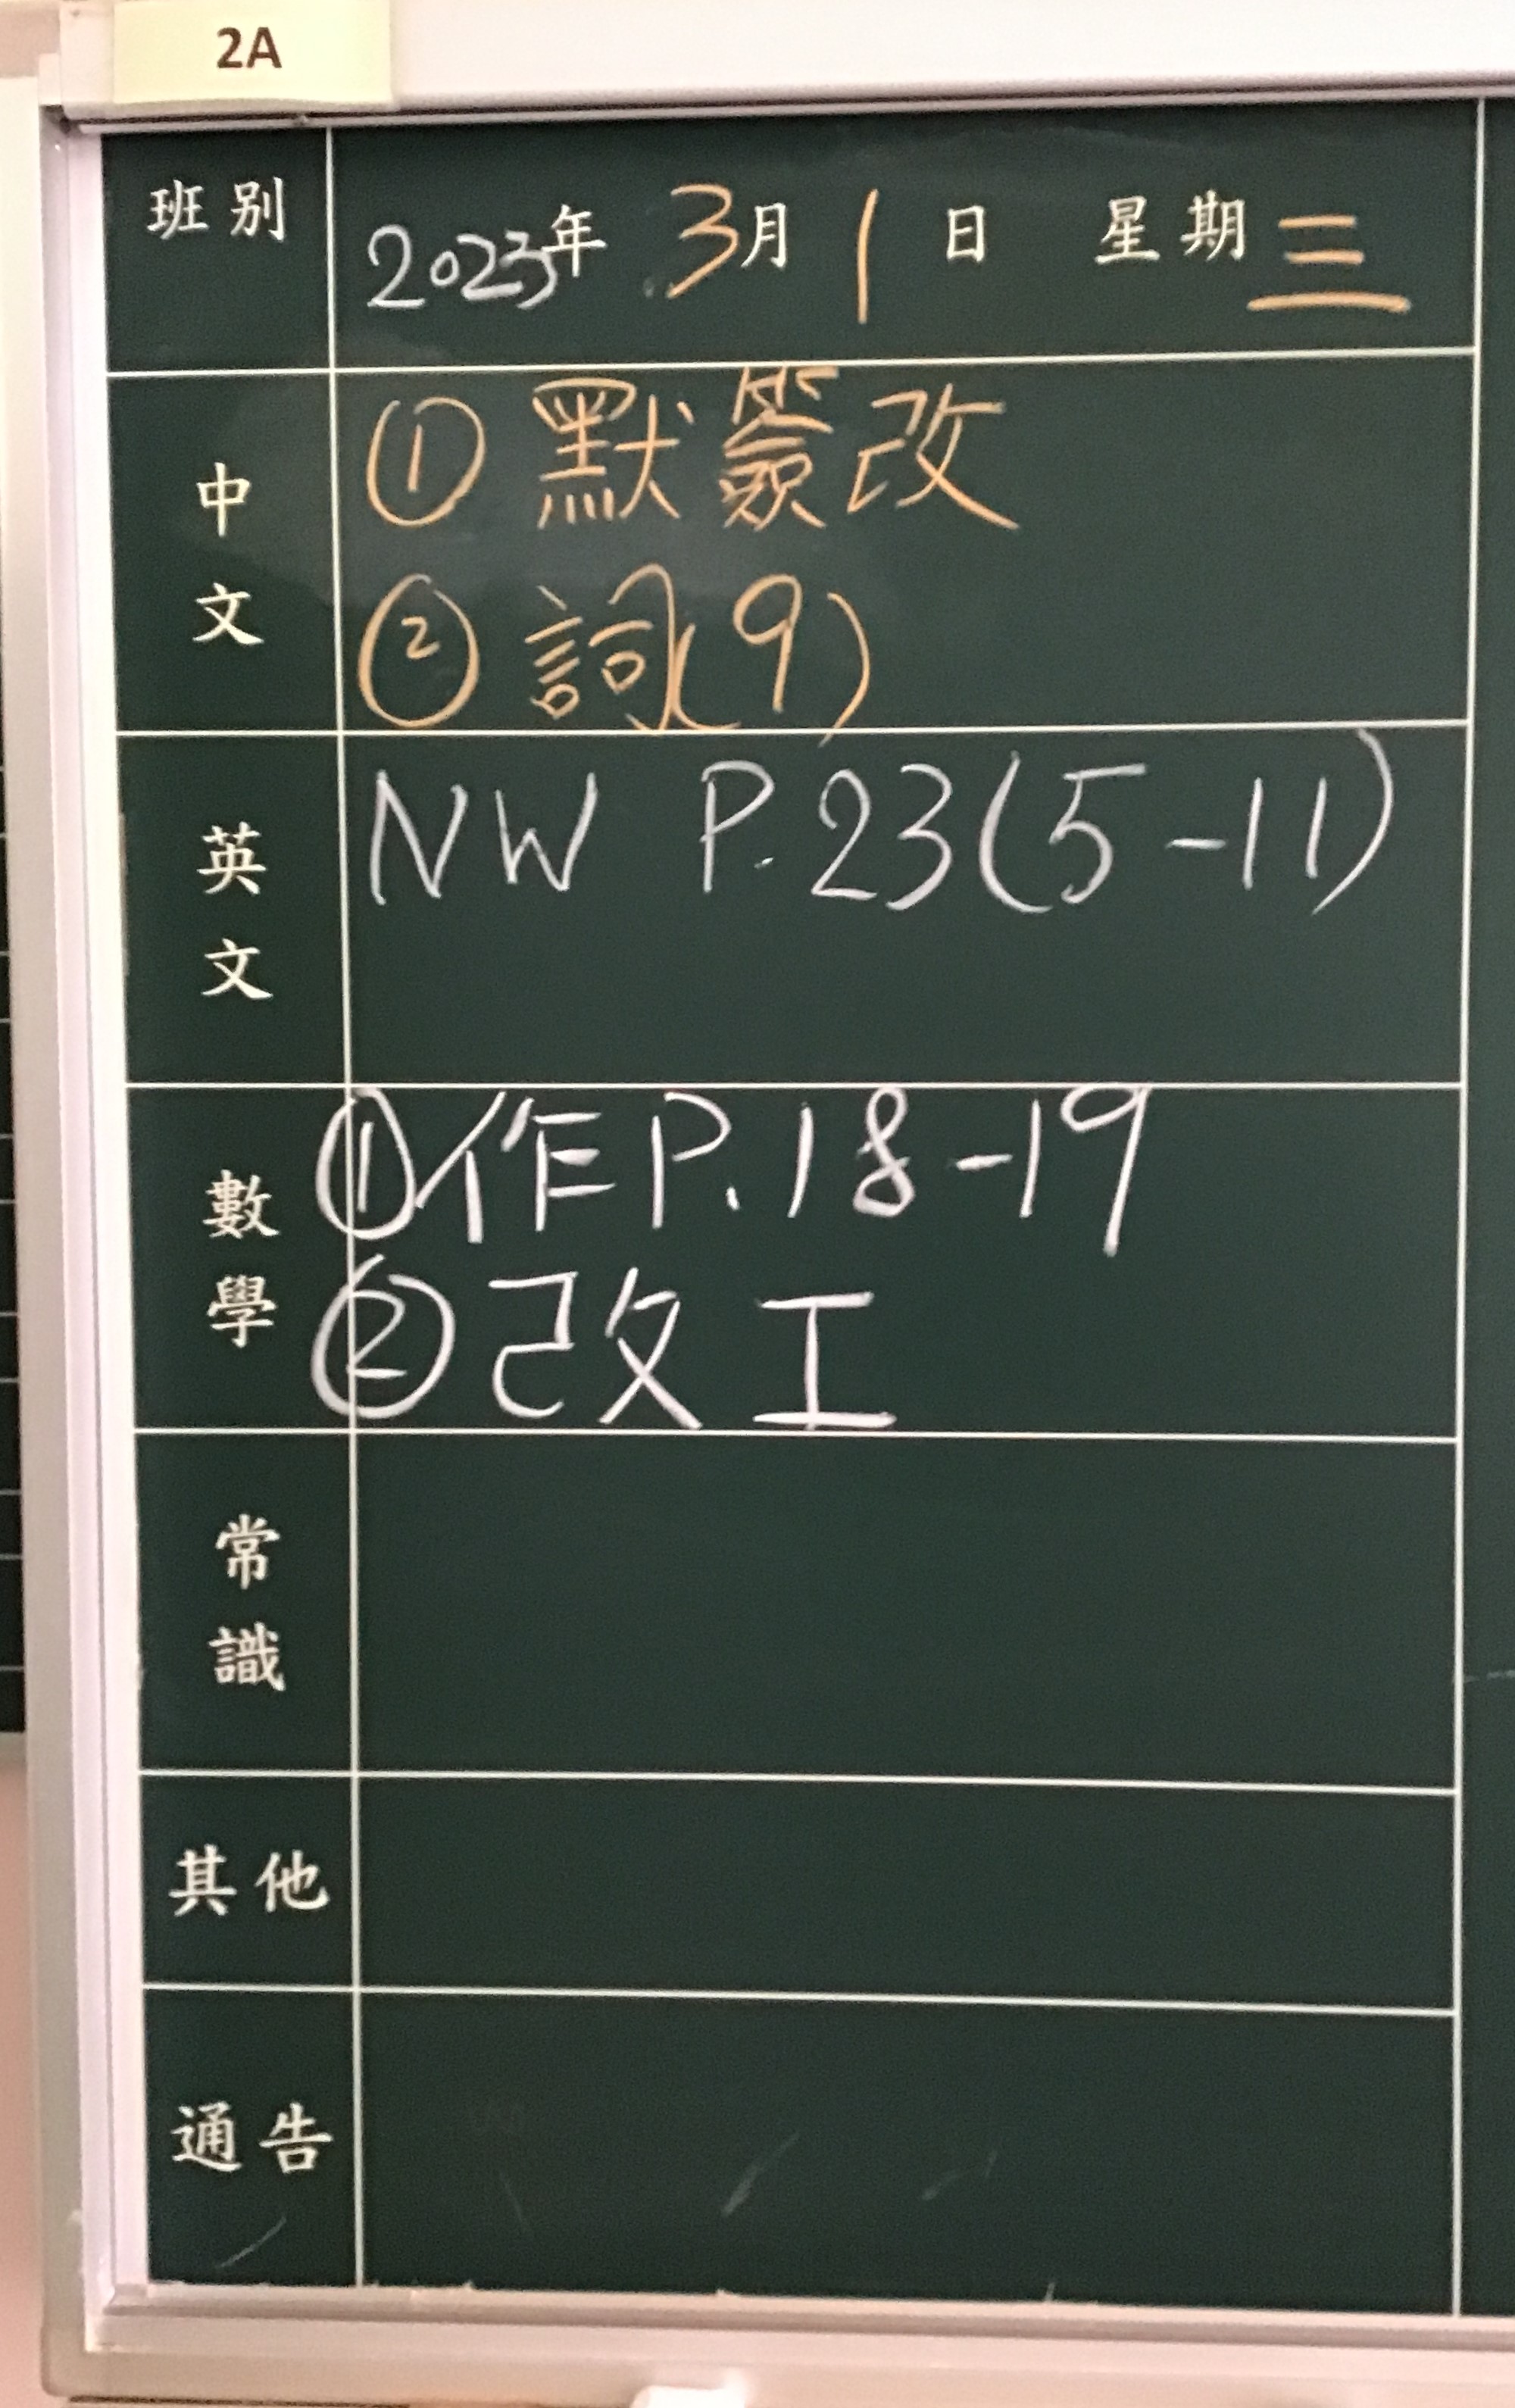 2A
班別 2023年 3月 1日 星期三
中文
① 默簽改
② 詞(9)
英文
NW P.23(5-11)
數學
①作P.18-19
②改工
常識
其他
通告